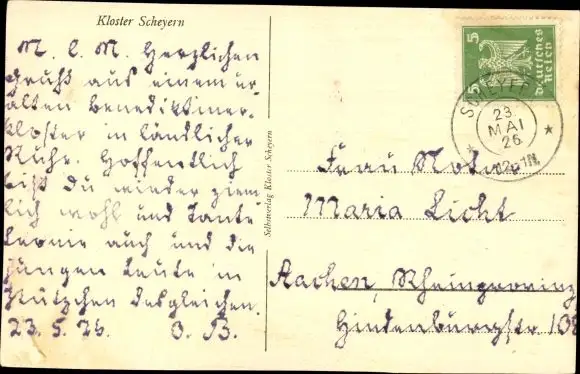 Kloster Scheyern
M. l. M. Herzlichen
Gruß aus einem ur-
alten Benediktiner-
kloster in ländlicher
Ruhe. Hoffentlich
bist Du wieder ziem-
lich wohl und Tante
Leonie auch und die
jungen Leute in
desgleichen.
23.5.26
Selbstverlag Kloster Scheyern
5 5
Deutsches
Reich
SCHEYERN
23.
MAI
26
Frau
Maria Licht
Aachen, Rheinprovinz
Hindenburgstr 108